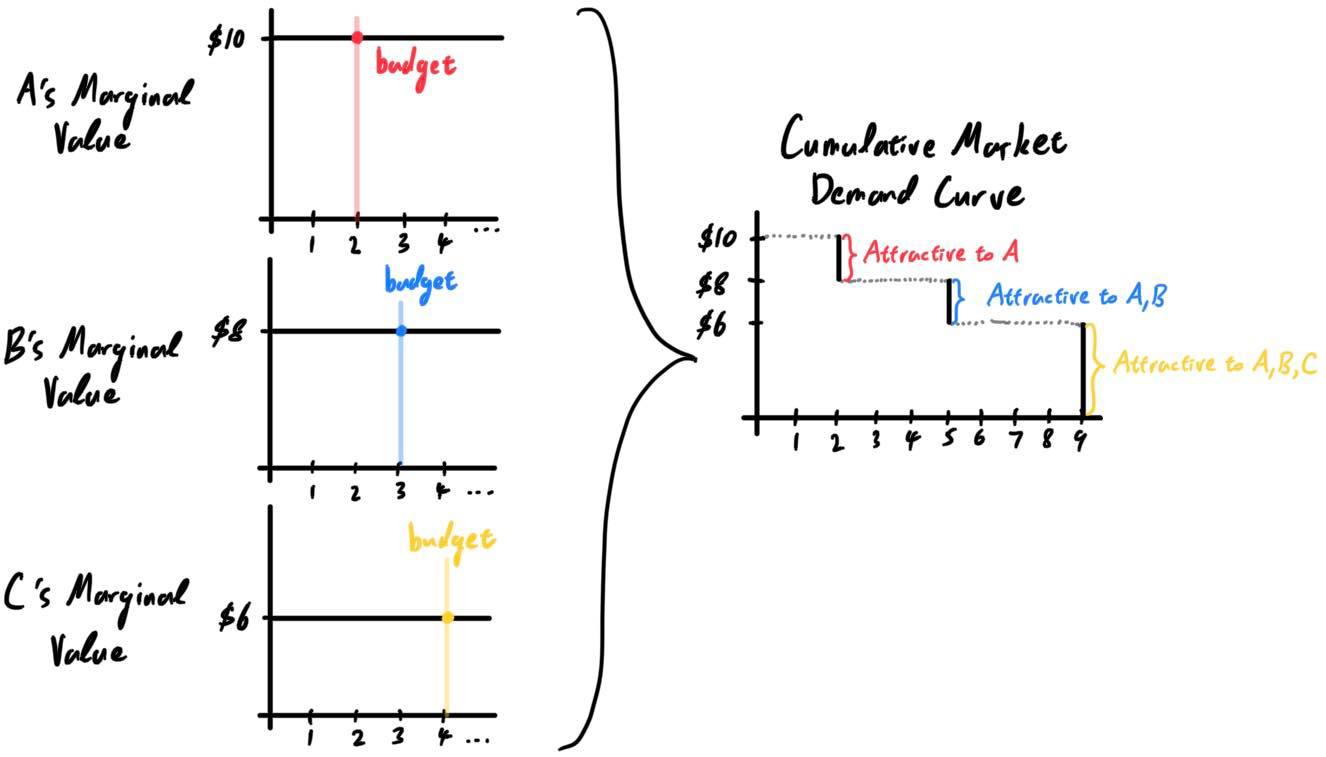 $10
budget
A's Marginal
Value
1 2 3 4 ...
budget
$8
B's Marginal
Value
1 2 3 4 ...
budget
C's Marginal
$6
Value
1 2 3 4 ...
Cumulative Market
Demand Curve
$10
Attractive to A
$8
Attractive to A,B
$6
Attractive to A,B,C
1 2 3 4 5 6 7 8 9